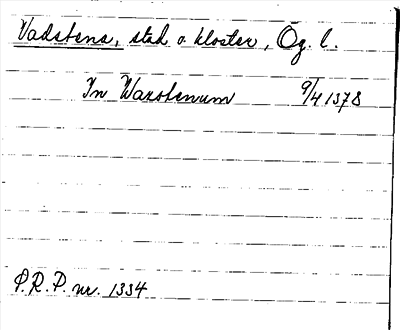 Vadstena, stad o. kloster, Ög. l.
In Wazstenum 9/4 1378
P.R.P. nr. 1334